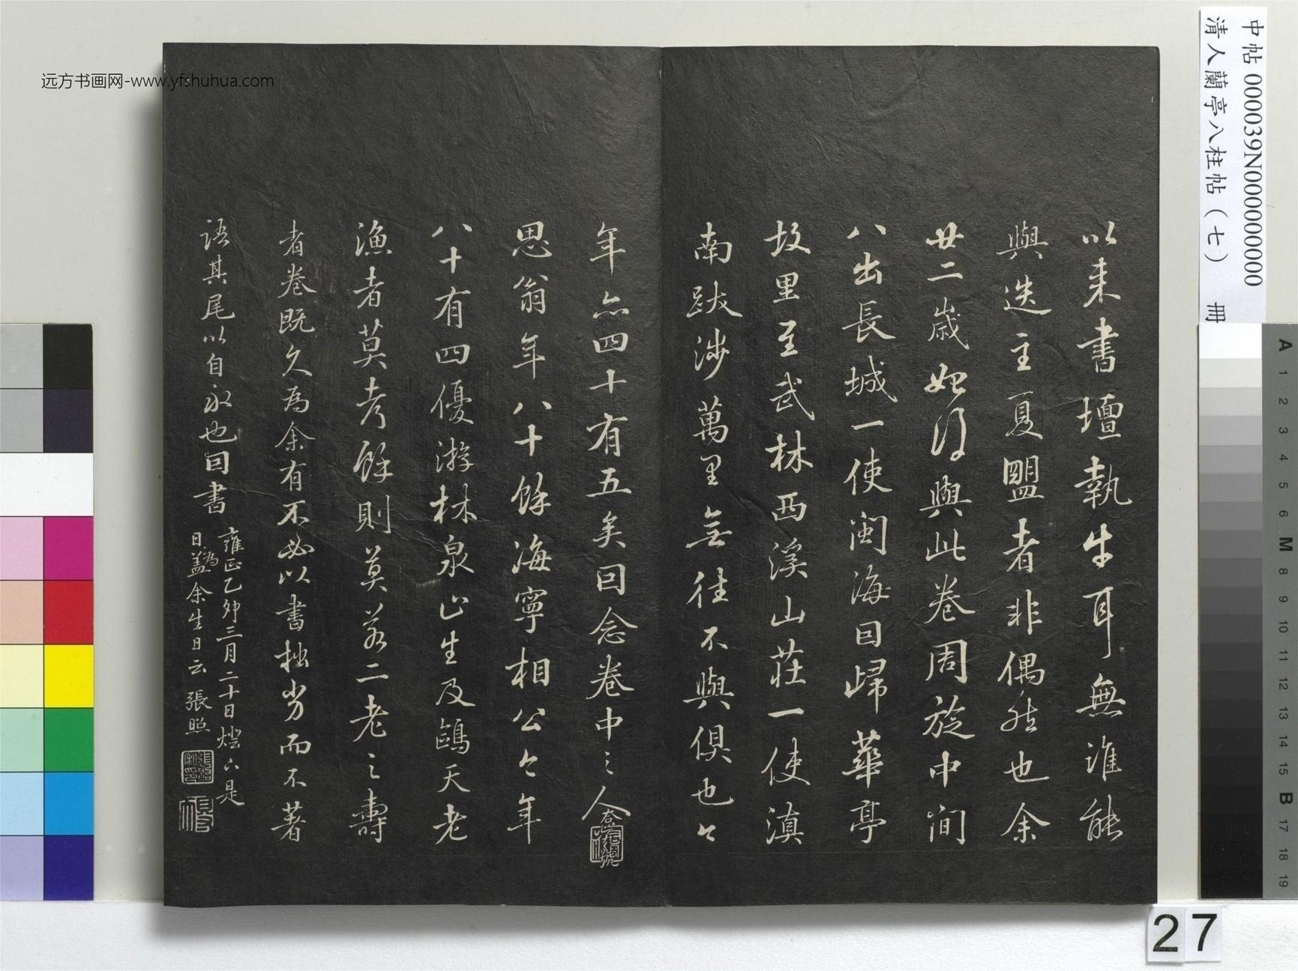 以来書壇執牛耳無誰能
與迭主夏盟者非偶然也余
廿二歳始得與此卷周旋中間
八出長城一使閩海回歸華亭
故里至武林西溪山莊一使滇
南跋涉萬里無往不與俱也今
年亦四十有五矣回念卷中之人
思翁年八十餘海寧相公今年
八十有四優游林泉此生及鷗天老
漁者莫考餘則莫若二老之壽
者卷既久為余有不必以書拙劣而不著
語其尾以自永也回書
雍正乙卯三月二十日燈下是
日為蓋余生日云 張照
远方书画网-www.yfshuhua.com
中帖 000039N000000000
清人蘭亭八柱帖（七） 冊
A 1 2 3 4 5 6 M 8 9 10 11 12 13 14 15 B 17 18 19
27